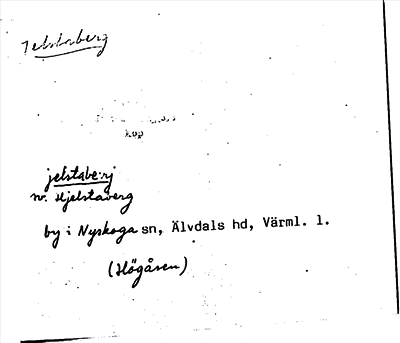 Jelstaberg
kop
jelstabe:rj
nv. Hjelstaberg
by i Nyskoga sn, Älvdals hd, Värml. l.
(Högåsen)